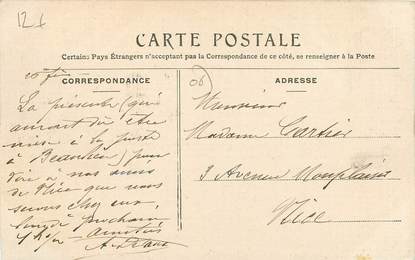 12f
CARTE POSTALE
Certains Pays Étrangers n'acceptant pas la Correspondance de ce côté, se renseigner à la Poste
CORRESPONDANCE
La présente (qui
aurait dû être
mise à la poste
à Beaulieu) pour
dire à nos amis
de Nice que nous
serons chez eux,
lundi prochain
amitiés
ADRESSE
06
Monsieur
Madame Cartier
3 Avenue Monplaisir
Nice